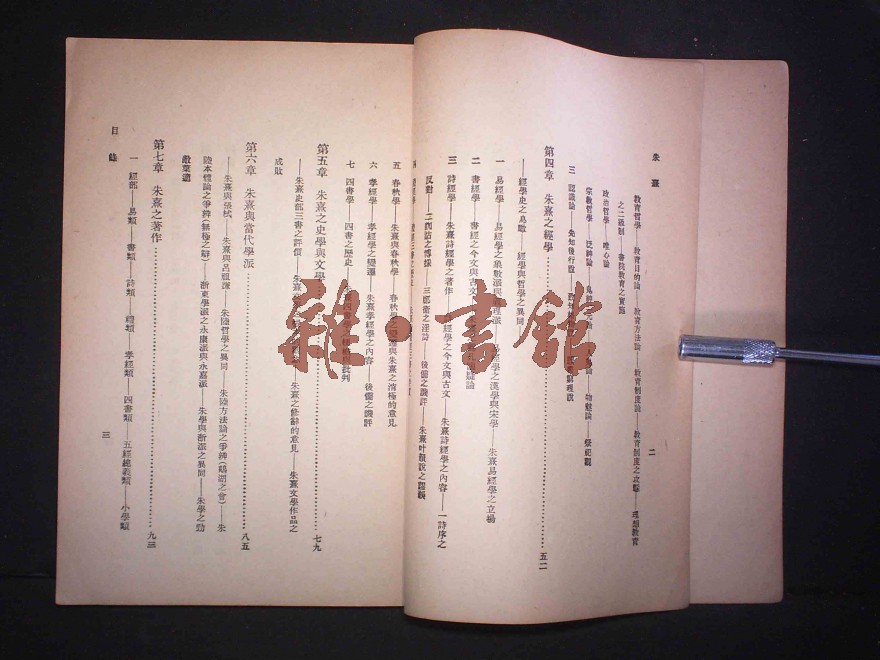 朱熹
二
教育哲學——教育目的論——教育方法論——教育制度論——教育制度之攻擊——理想教育
之二級制——書院教育之實施
政治哲學——唯心論
宗教哲學——泛神論——物魅論——祭祀觀
三 認識論——先知後行說——窮理說
第四章 朱熹之經學……五二
——經學史之鳥瞰——經學與哲學之異同
一 易經學——易經學之象數派與義理派——易經學之漢學與宋學——朱熹易經學之立場
二 書經學——書經之今文與古文
三 詩經學——朱熹詩經學之著作——詩經學之今文與古文——朱熹詩經學之內容——一詩序之
反對——二刪詩之懷疑——三鄭衛之淫詩——後儒之譏評——朱熹叶韻說之謬誤
五 春秋學——朱熹與春秋學——春秋學之變遷與朱熹之消極的意見
六 孝經學——孝經學之變遷——朱熹孝經學之內容——後儒之譏評
七 四書學——四書之歷史——批判
第五章 朱熹之史學與文學……七九
——朱熹史部三書之評價——朱熹之修辭的意見——朱熹文學作品之
成就
第六章 朱熹與當代學派……八五
——朱熹與張栻——朱熹與呂祖謙——朱陸哲學之異同——朱陸方法論之爭辨(鵝湖之會)——朱
陸本體論之爭辨(無極之辯)——浙東學派之永康派與永嘉派——朱學與浙派之異同——朱學之勁
敵葉適
第七章 朱熹之著作……九三
一 經部——易類——書類——詩類——禮類——孝經類——四書類——五經總義類——小學類
目錄
三
雜·書館